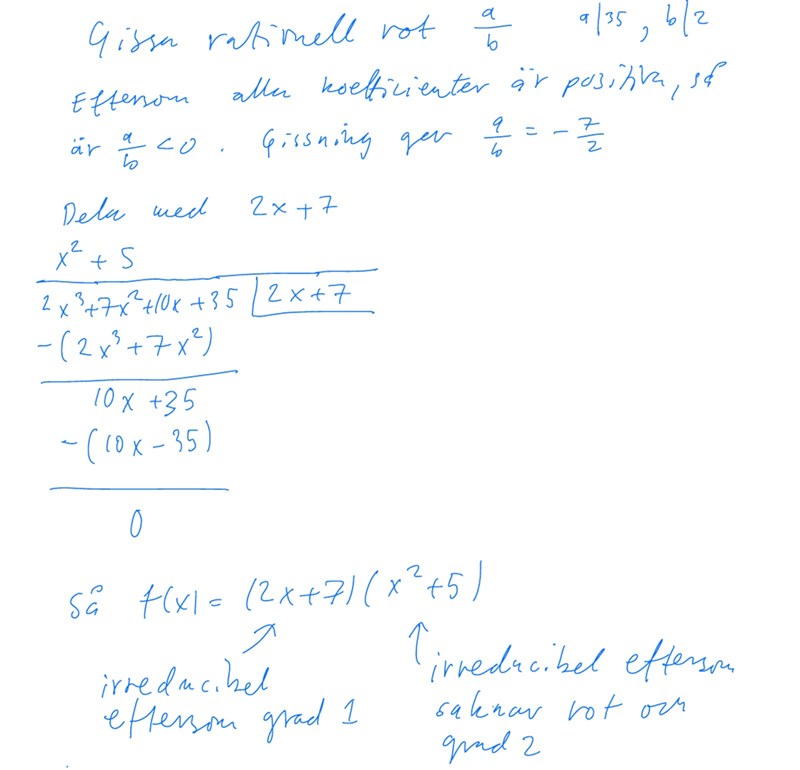 Gissa rationell rot a/b a|35, b|2
Eftersom alla koefficienter är positiva, så
är a/b < 0. Gissning ger a/b = -7/2
Dela med 2x+7
x² + 5
2x³+7x²+10x+35 | 2x+7
-(2x³+7x²)
10x +35
-(10x-35)
0
så f(x) = (2x+7)(x²+5)
irreducibel
eftersom grad 1
irreducibel eftersom
saknar rot och
grad 2